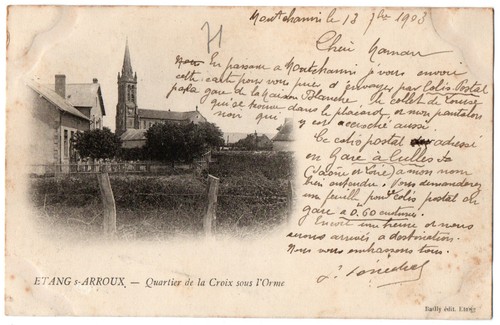 Montchanin le 13 7bre 1903
Chère Maman
en passant à Montchanin je vous envoie
cette carte pour vous prier d'envoyer par Colis Postal
gare de la maison Blanche, le collet de
qui se trouve dans le placard et mon pantalon
noir qui y est accroché aussi.
Ce colis postal adresse
en Gare à Culles
(Saône et Loire) à mon nom
bien entendu. Vous demanderez
une feuille pour Colis postal en
gare à 0.60 centimes.
Encore une heure et nous
serons arrivés à destination.
Nous vous embrassons tous.
ETANG s-ARROUX. — Quartier de la Croix sous l'Orme
Bailly édit. Etang